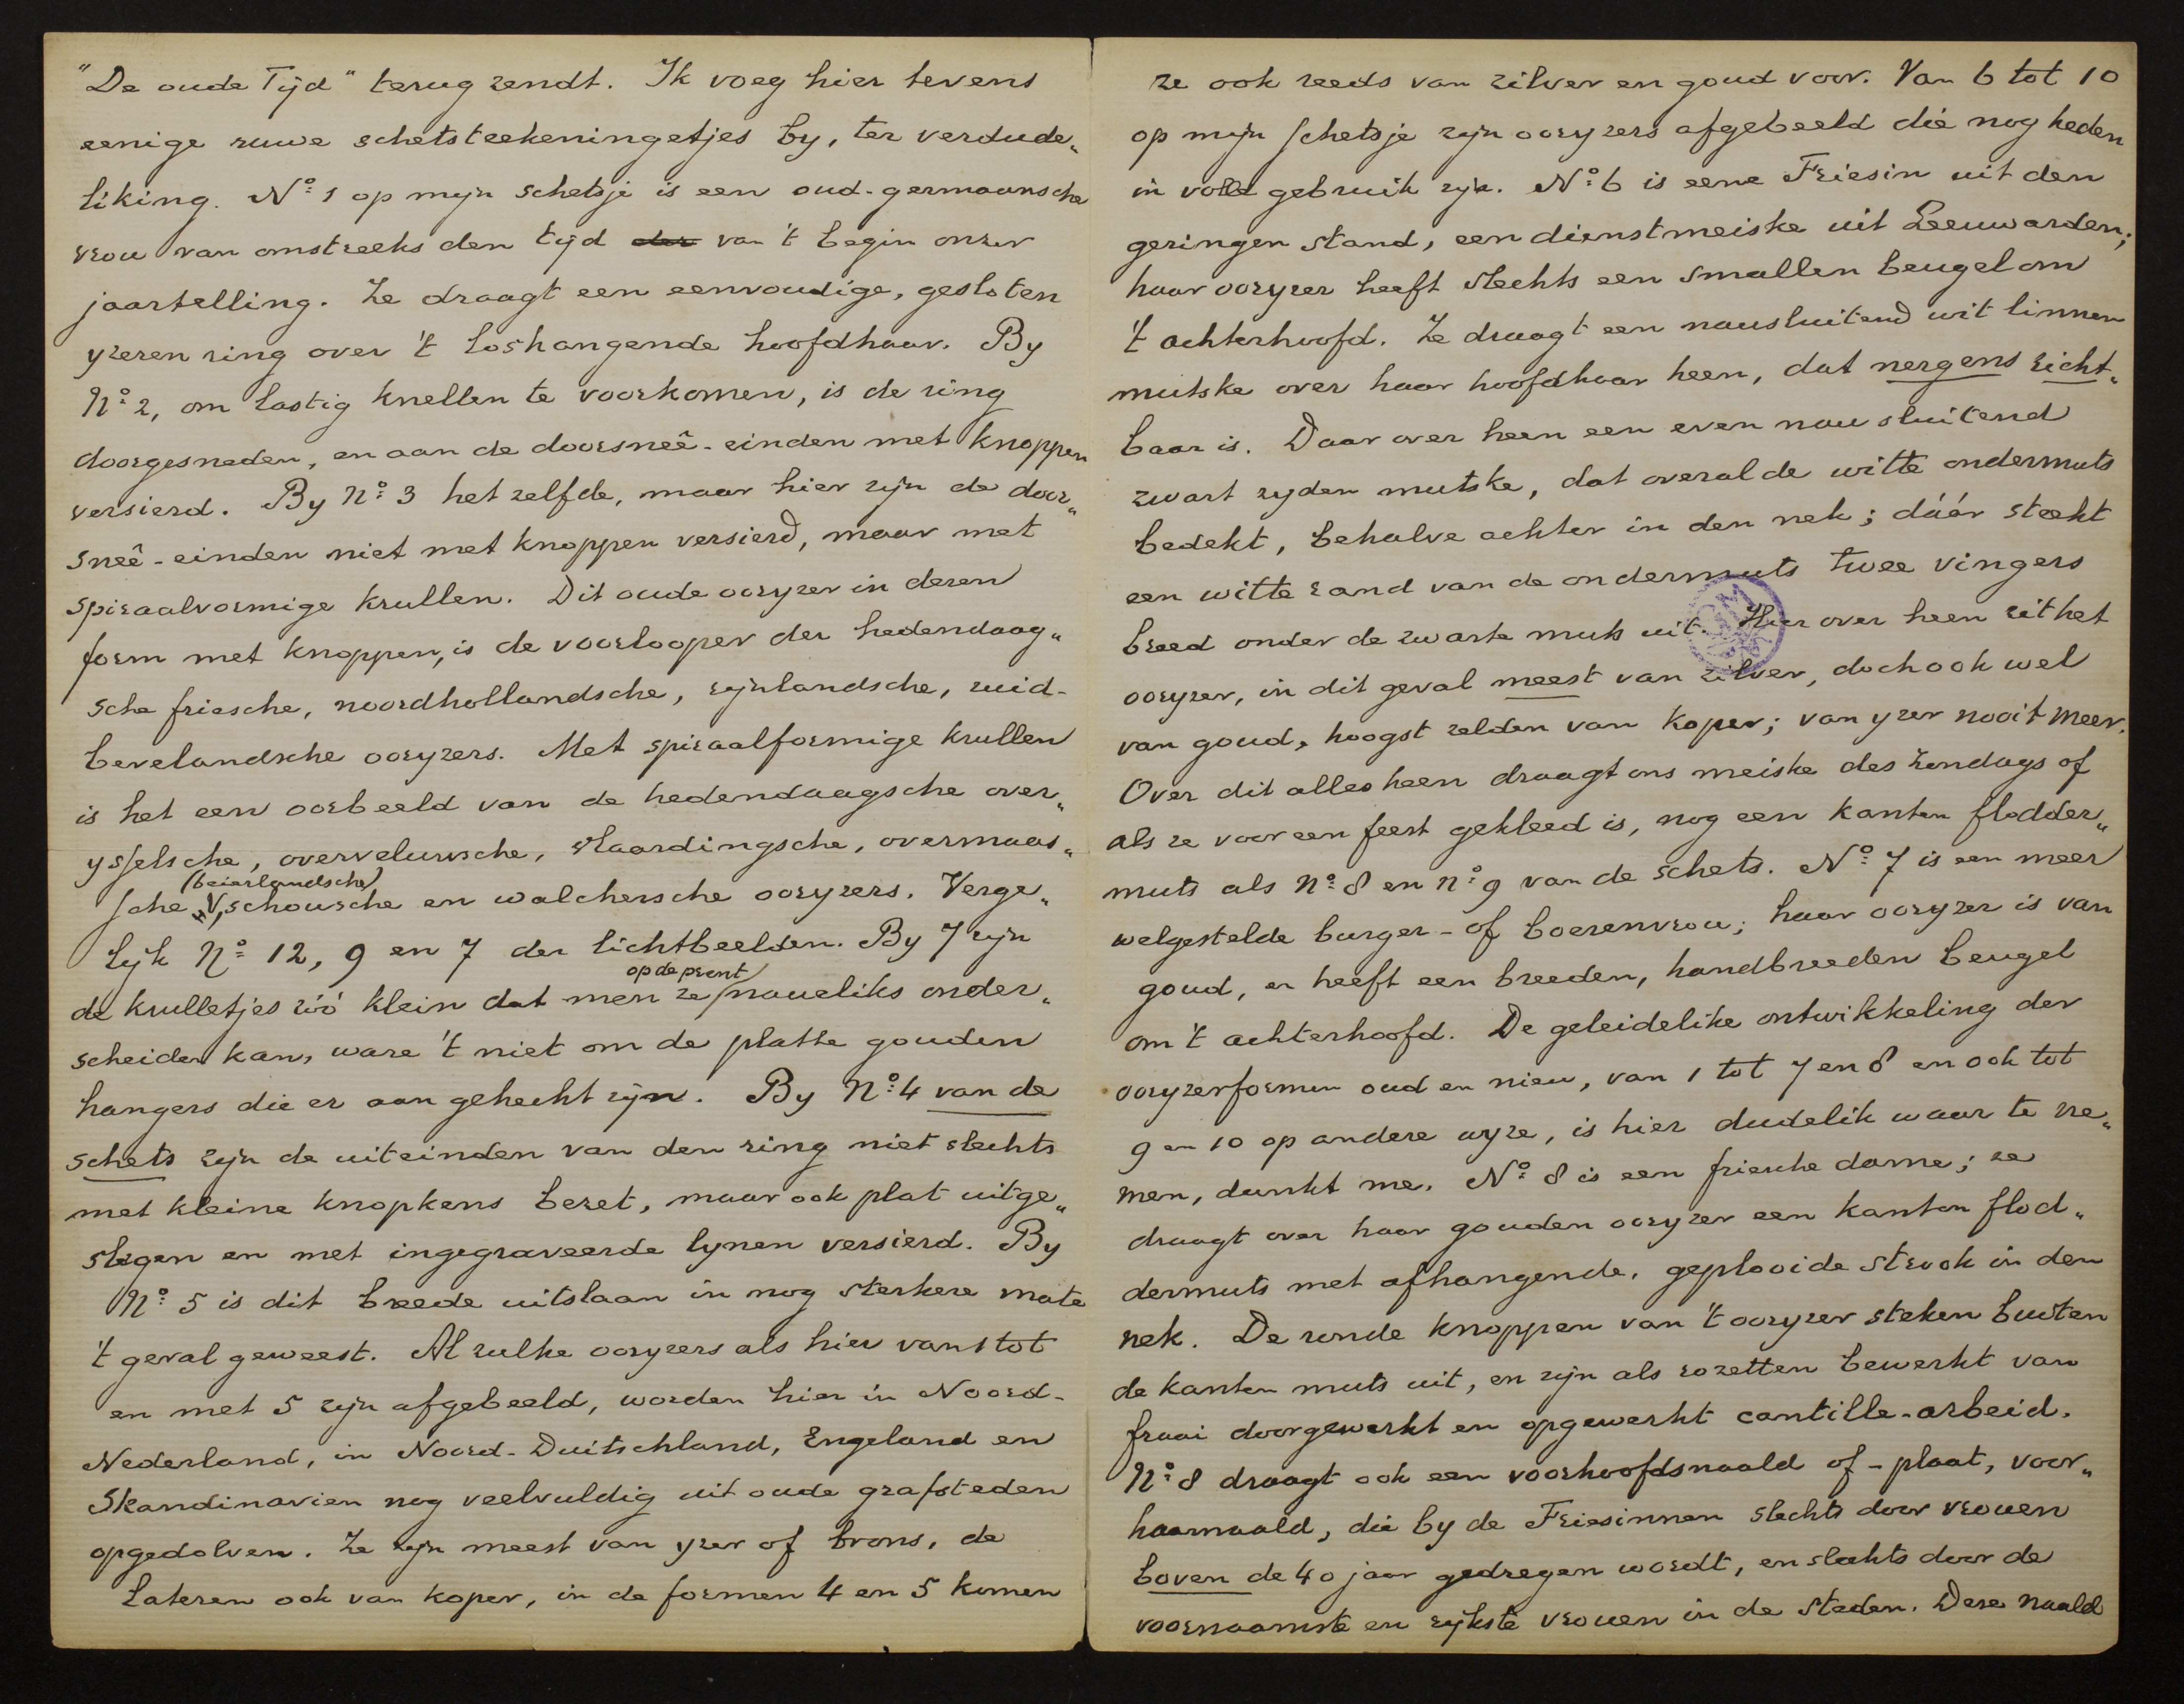 "De oude Tijd" terug zendt. Ik voeg hier tevens
eenige ruwe schetsteekeningetjes by, ter verdude„
liking. No. 1 op mijn schetsje is een oud-germaansche
vrou van omstreeks den tijd der van 't begin onzer
jaartelling. Ze draagt een eenvoudige, gesloten
yzeren ring over 't loshangende hoofdhaar. By
No. 2, om lastig knellen te voorkomen, is de ring
doorgesneden, en aan de doorsneê-einden met knoppen
versierd. By No. 3 het zelfde, maar hier zijn de door„
sneê-einden niet met knoppen versierd, maar met
spiraalvormige krullen. Dit oude ooryzer in dezen
form met knoppen, is de voorlooper der hedendaag„
sche friesche, noordhollandsche, rijnlandsche, zuid-
bevelandsche ooryzers. Met spiraalformige krullen
is het een oorbeeld van de hedendaagsche over„
ysselsche, overveluwsche, vlaardingsche, overmaas„
(beierlandsche)
sche, schouwsche en walchersche ooryzers. Verge„
lijk No. 12, 9 en 7 der lichtbeelden. By 7 zijn
op de prent
de krulletjes zóó klein dat men ze naueliks onder„
scheiden kan, ware 't niet om de platte gouden
hangers die er aan gehecht zijn. By No. 4 van de
schets zijn de uiteinden van den ring niet slechts
met kleine knopkens bezet, maar ook plat uitge„
slegen en met ingegraveerde lynen versierd. By
No. 5 is dit breede uitslaan in nog sterkere mate
't geval geweest. Al zulke ooryzers als hier van 1 tot
en met 5 zijn afgebeeld, worden hier in Noord-
Nederland, in Noord-Duitschland, Engeland en
Skandinavien nog veelvuldig uit oude grafsteden
opgedolven. Ze zijn meest van yzer of brons, de
lateren ook van koper, in de formen 4 en 5 komen
ze ook reeds van zilver en goud voor. Van 6 tot 10
op mijn schetsje zijn ooryzers afgebeeld die nog heden
in volle gebruik zijn. No. 6 is eene Friesin uit den
geringen stand, een dienstmeiske uit Leeuwarden;
haar ooryzer heeft slechts een smallen beugel om
't achterhoofd. Ze draagt een nausluitend wit linnen
mutske over haar hoofdhaar heen, dat nergens zicht„
baar is. Daar over heen een even nau sluitend
zwart zyden mutske, dat overal de witte ondermuts
bedekt, behalve achter in den nek; dáár steekt
een witte rand van de ondermuts twee vingers
breed onder de zwarte muts uit. Hier over heen zit het
ooryzer, in dit geval meest van zilver, doch ook wel
van goud, hoogst zelden van koper; van yzer nooit meer.
Over dit alles heen draagt ons meiske des Zondags of
als ze voor een feest gekleed is, nog een kanten flodder„
muts als No. 8 en no. 9 van de schets. No. 7 is een meer
welgestelde burger- of boerenvrou; haar ooryzer is van
goud, en heeft een breeden, handbreeden beugel
om 't achterhoofd. De geleidelike ontwikkeling der
ooryzerformen oud en nieu, van 1 tot 7 en 8 en ook tot
9 en 10 op andere wyze, is hier dudelik waar te ne„
men, dunkt me. No. 8 is een friesche dame; ze
draagt over haar gouden ooryzer een kanten flod„
dermuts met afhangende, geplooide strook in den
nek. De ronde knoppen van 't ooryzer steken buiten
de kanten muts uit, en zijn als rozetten bewerkt van
fraai doorgewerkt en opgewerkt cantille-arbeid.
No. 8 draagt ook een voorhoofdsnaald of -plaat, voor„
haarnaald, die by de Friesinnen slechts door vrouen
boven de 40 jaar gedregen wordt, en slechts door de
voornaamste en rykste vrouen in de steden. Deze naald